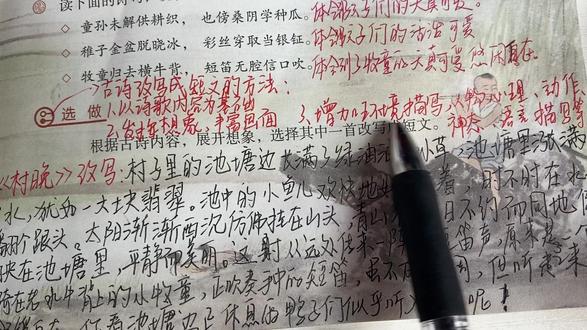 读下面的诗
童孙未解供耕织,也傍桑阴学种瓜。体会孩子们的天真可爱。
稚子金盆脱晓冰,彩丝穿取当银钲。体会孩子们的活泼可爱
牧童归去横牛背,短笛无腔信口吹。体会到了牧童的天真可爱 悠闲自在
古诗改写成短文的方法:
选做 1.以诗歌内容为基础 3.增加环境描写,人物心理、动作、
2.发挥想象,丰富画面 神态、语言描写等
根据古诗内容,展开想象,选择其中一首改写成短文。
《村晚》改写:村子里的池塘边长满了绿油油 小草,池塘里涨满
水,犹如一大块翡翠。池中的小鱼儿欢快地 着,时不时在水
翻个跟头。太阳渐渐西沉仿佛挂在山头,青山 日不约而同地倒
映在池塘里,平静而美丽。这 时从远处传来一阵 笛声,原来是一个
骑在老水牛背上的小牧童,此吹奏和的短笛,虽不 但听起来
池塘边正休息的鸭子们似乎听 呢!